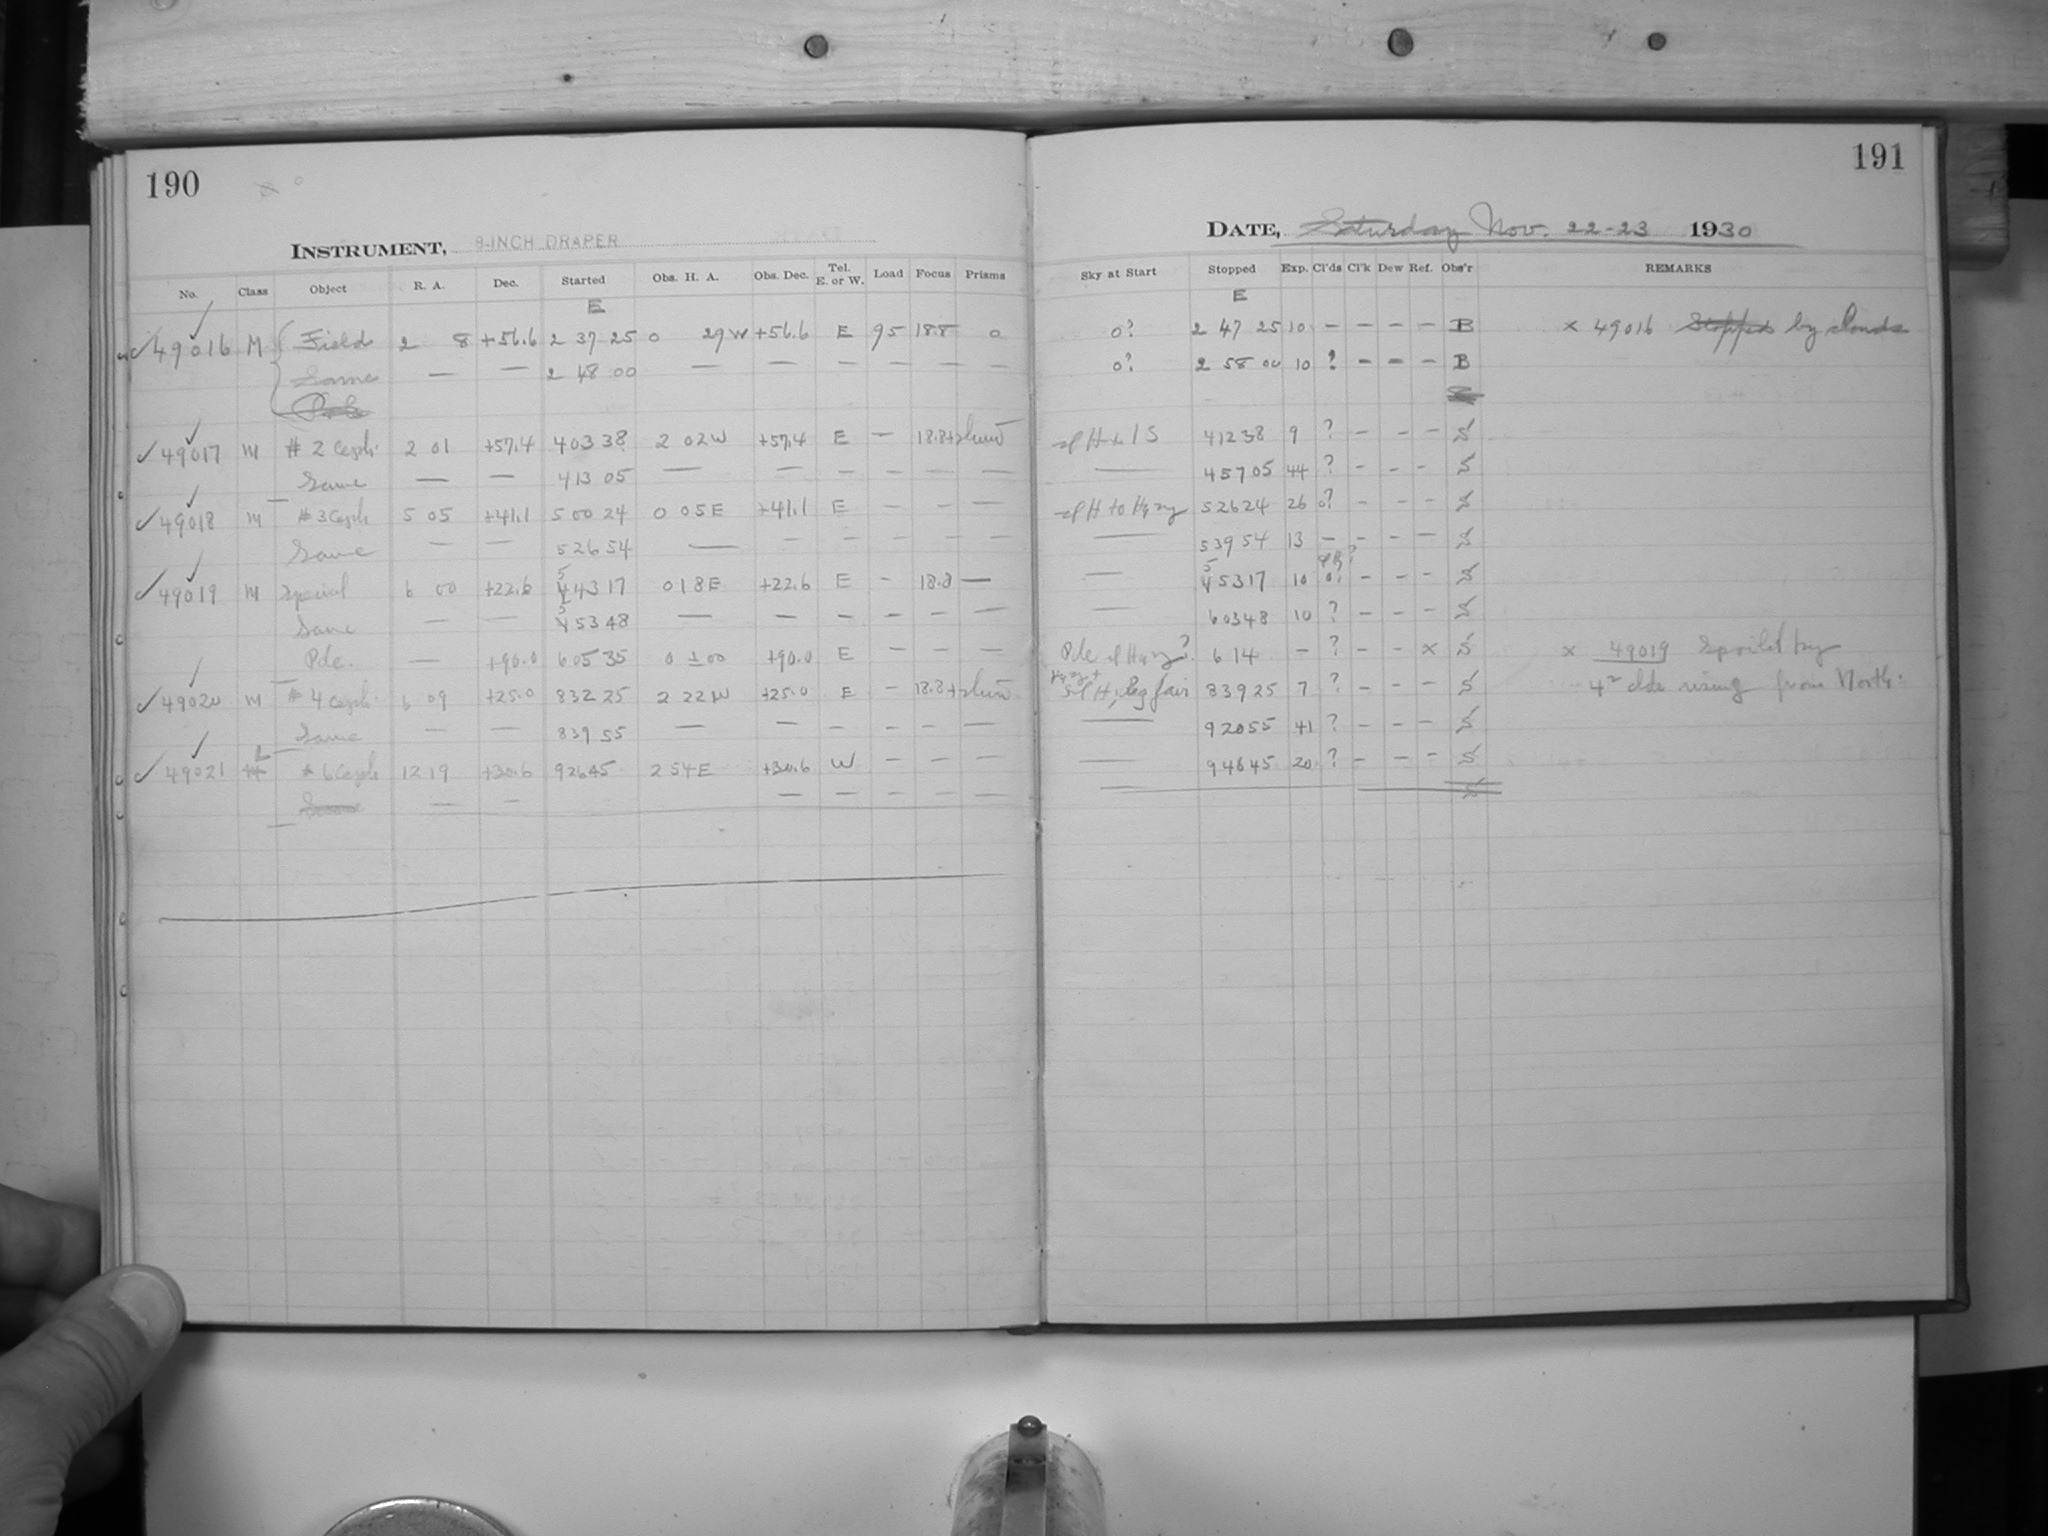 190
INSTRUMENT, 8-INCH DRAPER
No. Class Object R. A. Dec. Started Obs. H. A. Obs. Dec. Tel. E. or W. Load Focus Prisms
E
49016 M Field 2 8 +56.6 2 37 25 0 29 W +56.6 E 95 18.8 0
Same — — 2 48 00 — — — — — —
49017 M # 2 Ceph. 2 01 +57.4 4 03 38 2 02 W +57.4 E — 18.8
Same — — 4 13 05 — — — — — —
49018 M # 3 Ceph 5 05 +41.1 5 00 24 0 05 E +41.1 E — — —
Same — — 5 26 54 — — — — — —
49019 M Special 6 00 +22.6 5 43 17 0 18 E +22.6 E — 18.8 —
Same — — 5 53 48 — — — — — —
Pole — +90.0 6 05 35 0 ± 00 +90.0 E — — —
49020 M # 4 Ceph. 6 09 +25.0 8 32 25 2 22 W +25.0 E — 18.8
Same — — 8 39 55 — — — — — —
49021 L # 6 Ceph 12 19 +30.6 9 26 45 2 54 E +30.6 W — — —
Same — — — — — — —
191
DATE, Saturday Nov. 22-23 1930
Sky at Start Stopped Exp. Cl'ds Cl'k Dew Ref. Obs'r REMARKS
E
0? 2 47 25 10 — — — — B × 49016 Stopped by clouds
0? 2 58 00 10 ? — — — B
4 12 38 9 ? — — — S
— 4 57 05 44 ? — — — S
5 26 24 26 0? — — — S
— 5 39 54 13 — — — — S
— 5 53 17 10 0? — — — S
— 6 03 48 10 ? — — — S
Pole 6 14 — ? — — × S × 49019 Spoilt by
fair 8 39 25 7 ? — — — S 4² clds rising from North.
— 9 20 55 41 ? — — — S
— 9 46 45 20 ? — — — S
S